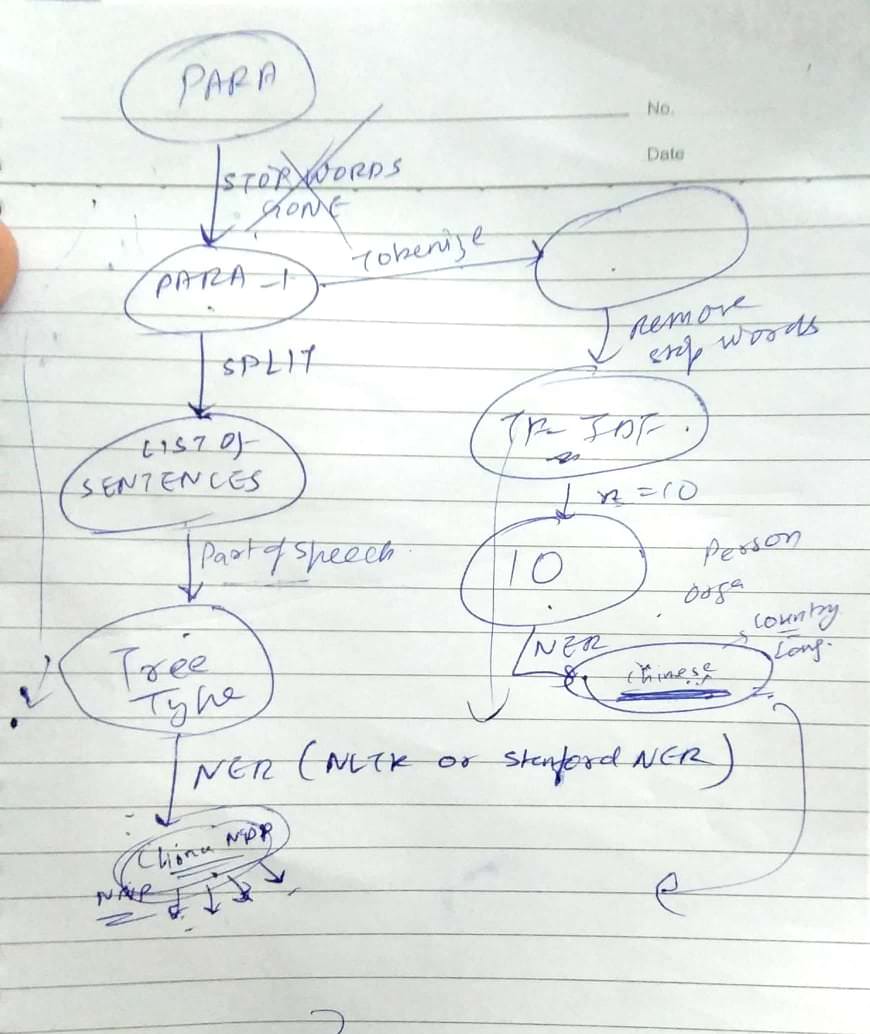 PARA
No.
Date
STOP WORDS
GONE
Tokenize
PARA-1
remove
stop words
SPLIT
LIST OF
SENTENCES
TF-IDF
n=10
Part of Speech
10
Person
Orga
Country
Lang.
NER
Chinese
Tree
Type
NER (NLTK or Stanford NER)
China
NNP